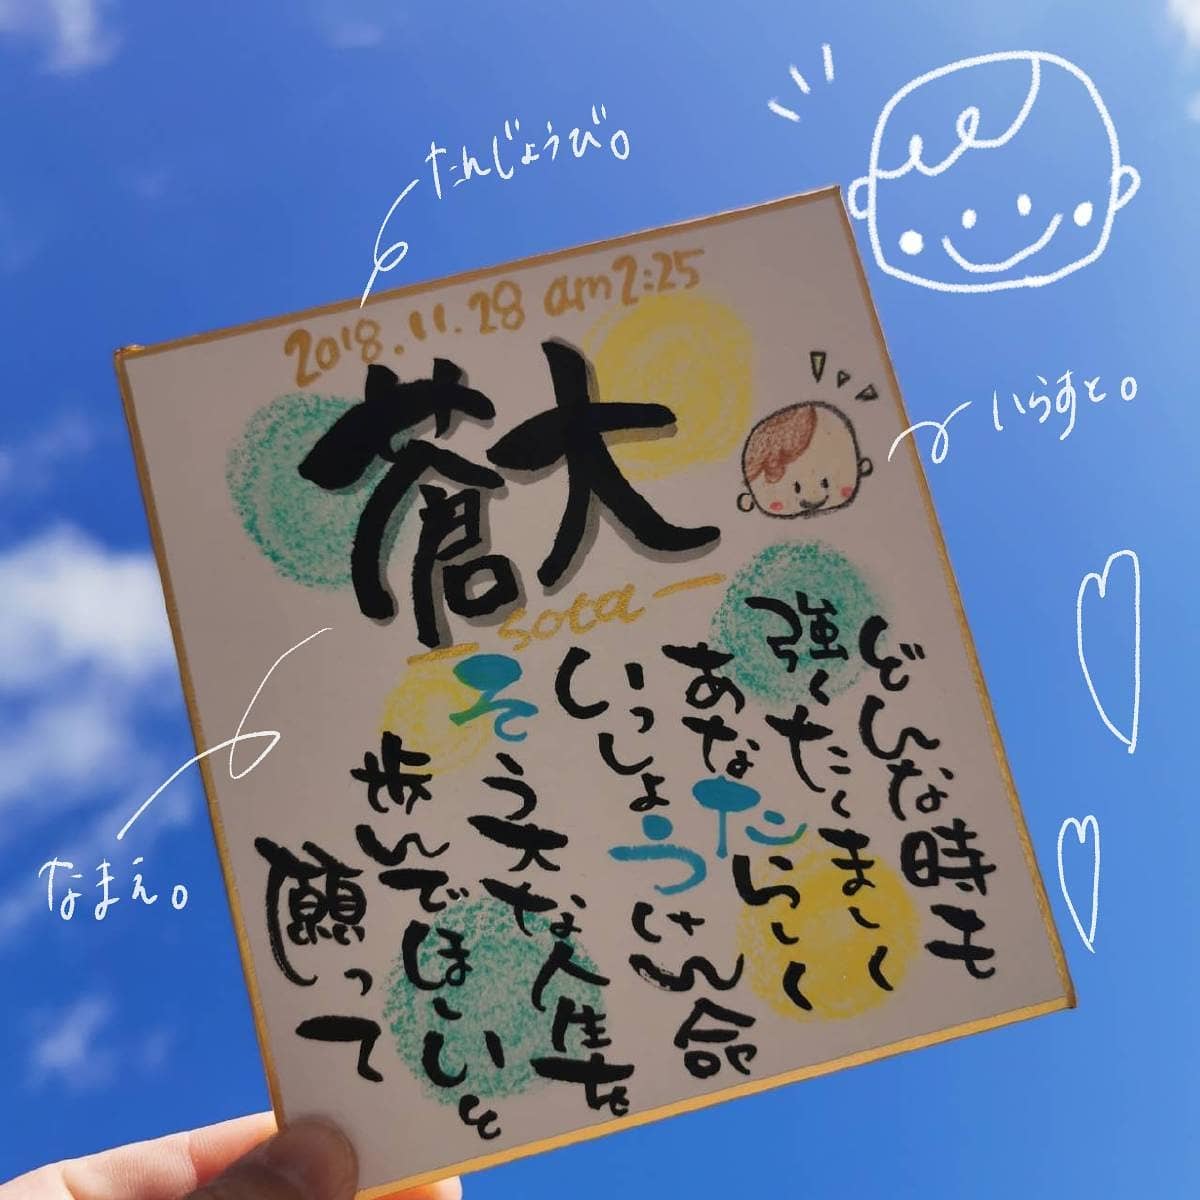 たんじょうび。
2018.11.28 am2:25
蒼大
sota
いらすと。
どんな時も
強くたくましく
あなたらしく
いっしょうけん命
そう大な人生を
歩んでほしいと
願って
なまえ。